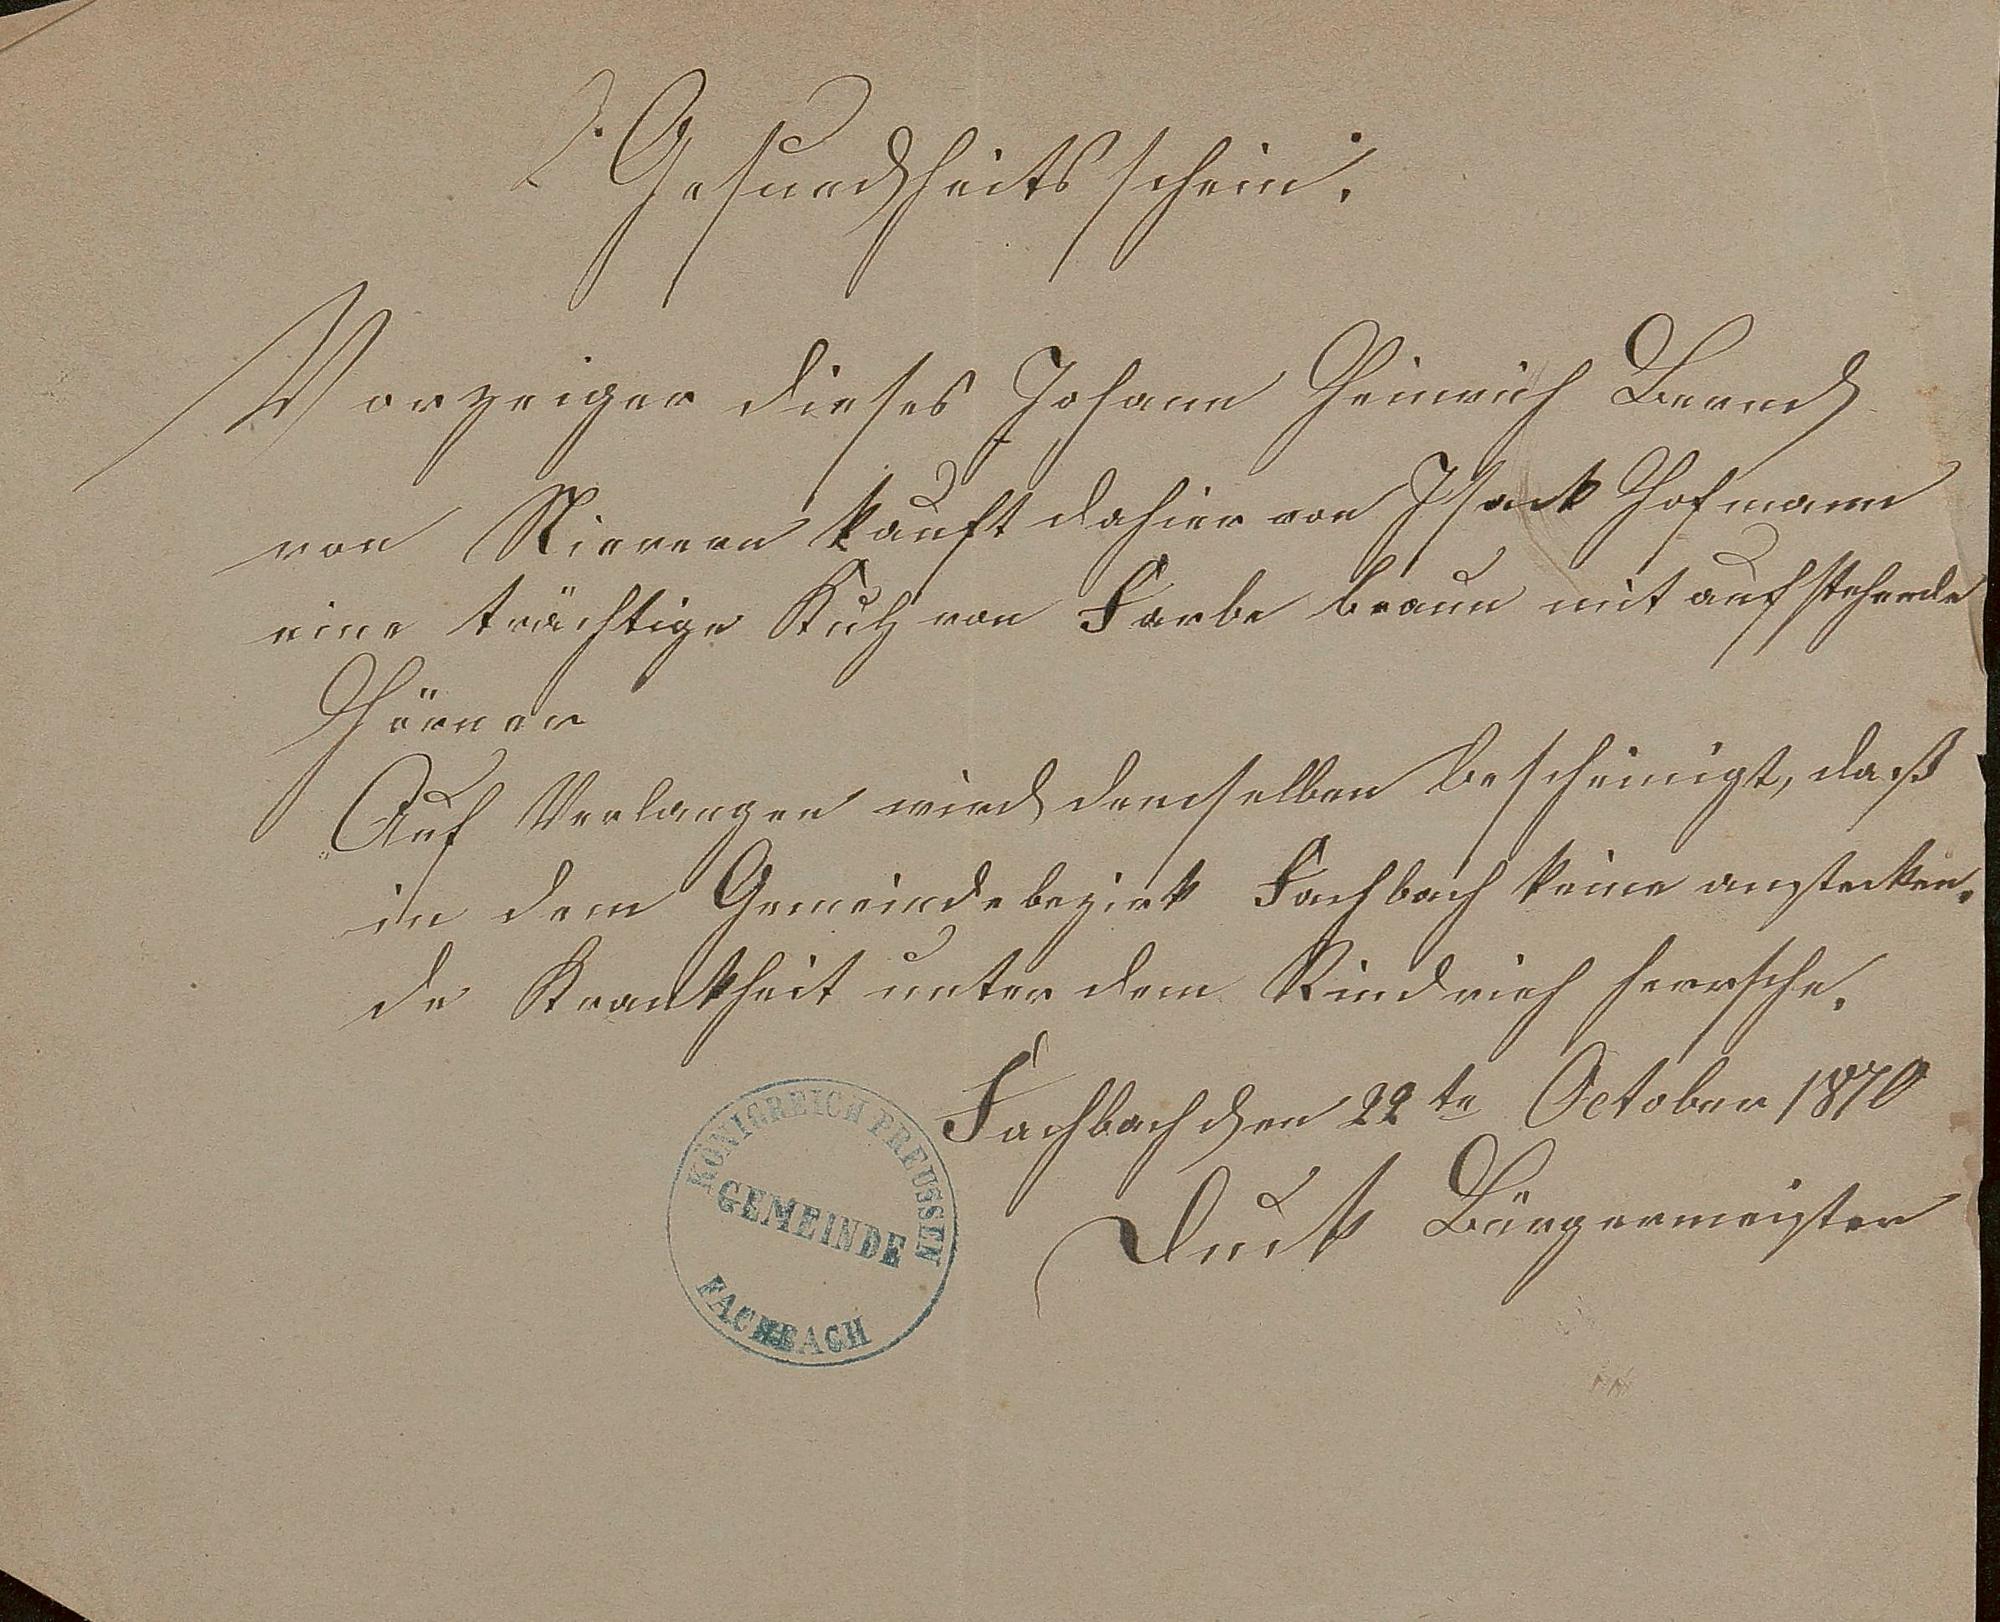 Gesundheitsschein.
Vorzeiger dieses Johann Heinrich Bernd
von Nievern kauft dahier von Isack Hofmann
eine trächtige Kuh von Farbe braun mit aufstehende
Hörner
Auf Verlangen wird demselben bescheinigt, daß
in dem Gemeindebezirk Fachbach keine anstecken-
de Krankheit unter dem Rindvieh herrsche.
Fachbach den 22te October 1870
Bürgermeister
KÖNIGREICH PREUSSEN
GEMEINDE
FACHBACH